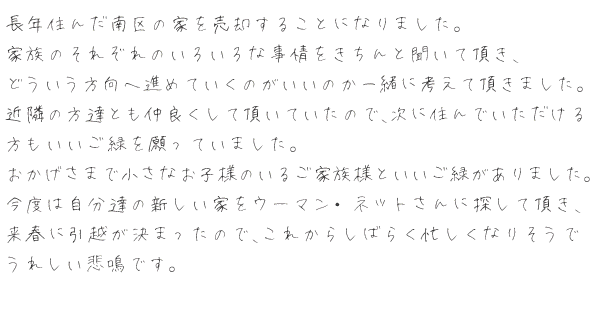 長年住んだ南区の家を売却することになりました。
家族のそれぞれのいろいろな事情をきちんと聞いて頂き、
どういう方向へ進めていくのがいいのか一緒に考えて頂きました。
近隣の方達とも仲良くして頂いていたので、次に住んでいただける
方もいいご縁を願っていました。
おかげさまで小さなお子様のいるご家族様といいご縁がありました。
今度は自分達の新しい家をウーマン・ネットさんに探して頂き、
来春に引越が決まったので、これからしばらく忙しくなりそうで
うれしい悲鳴です。